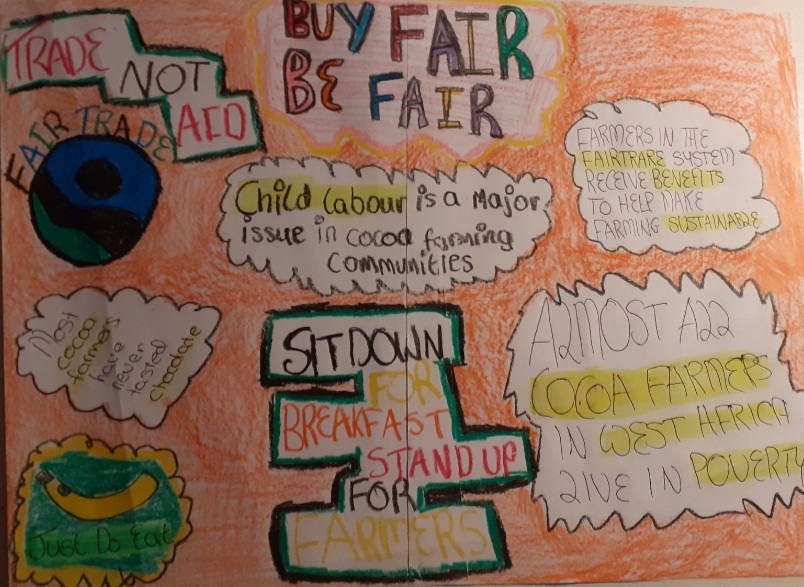 TRADE
NOT
AID
BUY FAIR
BE FAIR
FAIR TRADE
FARMERS IN THE
FAIRTRARE SYSTEM
RECEIVE BENEFITS
TO HELP MAKE
FARMING SUSTAINABLE
Child labour is a Major
issue in cocoa farming
communities
Most
cocoa
farmers
have
never
tasted
chocolate
SIT DOWN
FOR
BREAKFAST
STAND UP
FOR
FARMERS
ALMOST ALL
COCOA FARMERS
IN WEST AFRICA
LIVE IN POVERTY
Just Do Eat